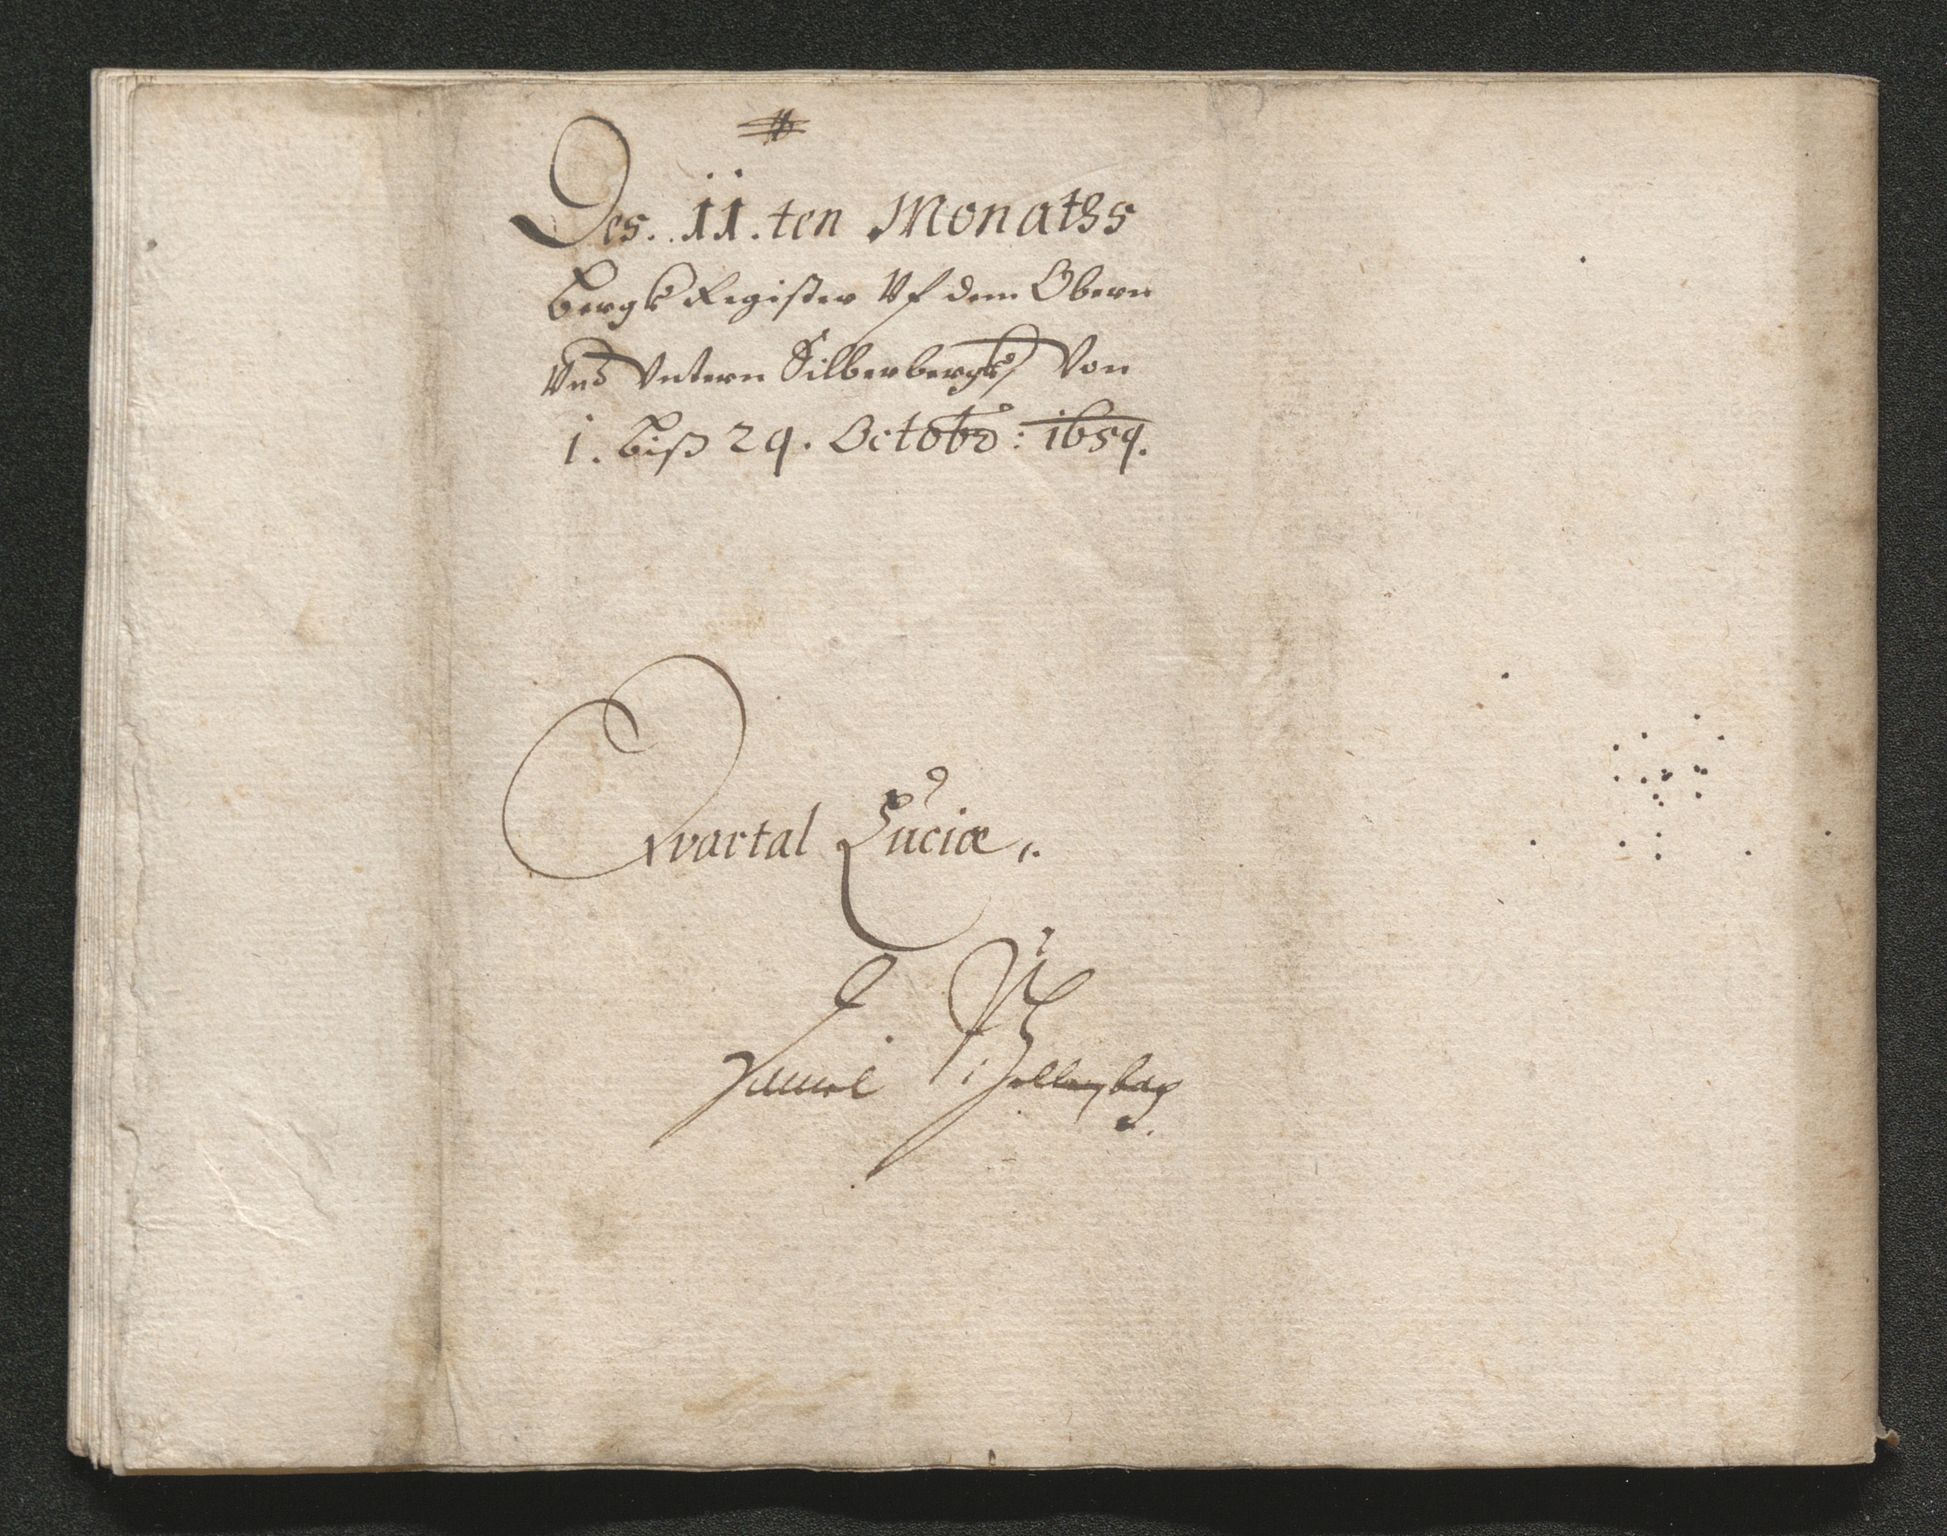 Des. 11. ten Monaths
Bergk Register Vf dem Obern
Vnd Vntern Silberbergk Von
1. biß 29. Octobr: 1659.
Qvartal Luciæ